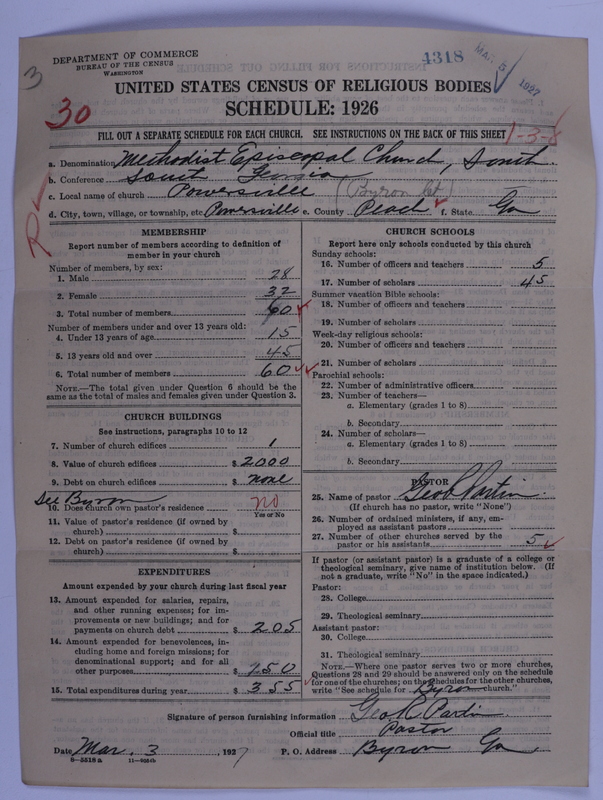 DEPARTMENT OF COMMERCE
BUREAU OF THE CENSUS
WASHINGTON
3
4318
MAR 5 1927
30
UNITED STATES CENSUS OF RELIGIOUS BODIES
SCHEDULE: 1926
FILL OUT A SEPARATE SCHEDULE FOR EACH CHURCH. SEE INSTRUCTIONS ON THE BACK OF THIS SHEET
1-3-8
a. Denomination Methodist Episcopal Church, South.
b. Conference South Georgia
c. Local name of church Powersville (Byron Ct)
d. City, town, village, or township, etc. Powersville e. County Peach f. State Ga
R
MEMBERSHIP
Report number of members according to definition of member in your church
Number of members, by sex:
1. Male 28
2. Female 32
3. Total number of members 60
Number of members under and over 13 years old:
4. Under 13 years of age 15
5. 13 years old and over 45
6. Total number of members 60
NOTE.—The total given under Question 6 should be the same as the total of males and females given under Question 3.
CHURCH BUILDINGS
See instructions, paragraphs 10 to 12
7. Number of church edifices 1
8. Value of church edifices $ 2000
9. Debt on church edifices $ none
See Byron
10. Does church own pastor's residence no
Yes or No
11. Value of pastor's residence (if owned by church) $
12. Debt on pastor's residence (if owned by church) $
EXPENDITURES
Amount expended by your church during last fiscal year
13. Amount expended for salaries, repairs, and other running expenses; for improvements or new buildings; and for payments on church debt $ 205
14. Amount expended for benevolences, including home and foreign missions; for denominational support; and for all other purposes $ 150
15. Total expenditures during year $ 355
CHURCH SCHOOLS
Report here only schools conducted by this church
Sunday schools:
16. Number of officers and teachers 5
17. Number of scholars 45
Summer vacation Bible schools:
18. Number of officers and teachers
19. Number of scholars
Week-day religious schools:
20. Number of officers and teachers
21. Number of scholars
Parochial schools:
22. Number of administrative officers
23. Number of teachers—
a. Elementary (grades 1 to 8)
b. Secondary
24. Number of scholars—
a. Elementary (grades 1 to 8)
b. Secondary
PASTOR
25. Name of pastor Geo R Partin
(If church has no pastor, write "None")
26. Number of ordained ministers, if any, employed as assistant pastors
27. Number of other churches served by the pastor or his assistants 5
If pastor (or assistant pastor) is a graduate of a college or theological seminary, give name of institution below. (If not a graduate, write "No" in the space indicated.)
Pastor:
28. College
29. Theological seminary
Assistant pastor:
30. College
31. Theological seminary
NOTE.—Where one pastor serves two or more churches, Questions 28 and 29 should be answered only on the schedule for one of the churches; on the schedules for the other churches, write "See schedule for Byron church."
Signature of person furnishing information Geo R Partin
Official title Pastor
Date Mar. 3, 1927 P. O. Address Byron Ga
8—5518 a 11—9054b